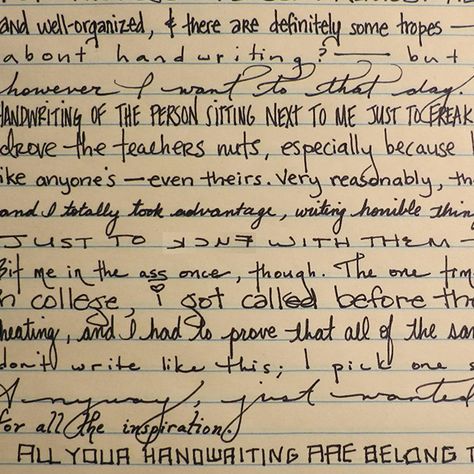 and well-organized, & there are definitely some tropes —
about handwriting? — but
however I want to that day.
HANDWRITING OF THE PERSON SITTING NEXT TO ME JUST TO FREAK
drove the teachers nuts, especially because
like anyone's — even theirs. Very reasonably, th
and I totally took advantage, writing horrible thing
JUST TO WITH THEM —
Bit me in the ass once, though. The one tim
n college, i got called before th
heating, and I had to prove that all of the sa
don't write like this; I pick one s
Anyway, just wanted
for all the inspiration.
ALL YOUR HANDWRITING ARE BELONG